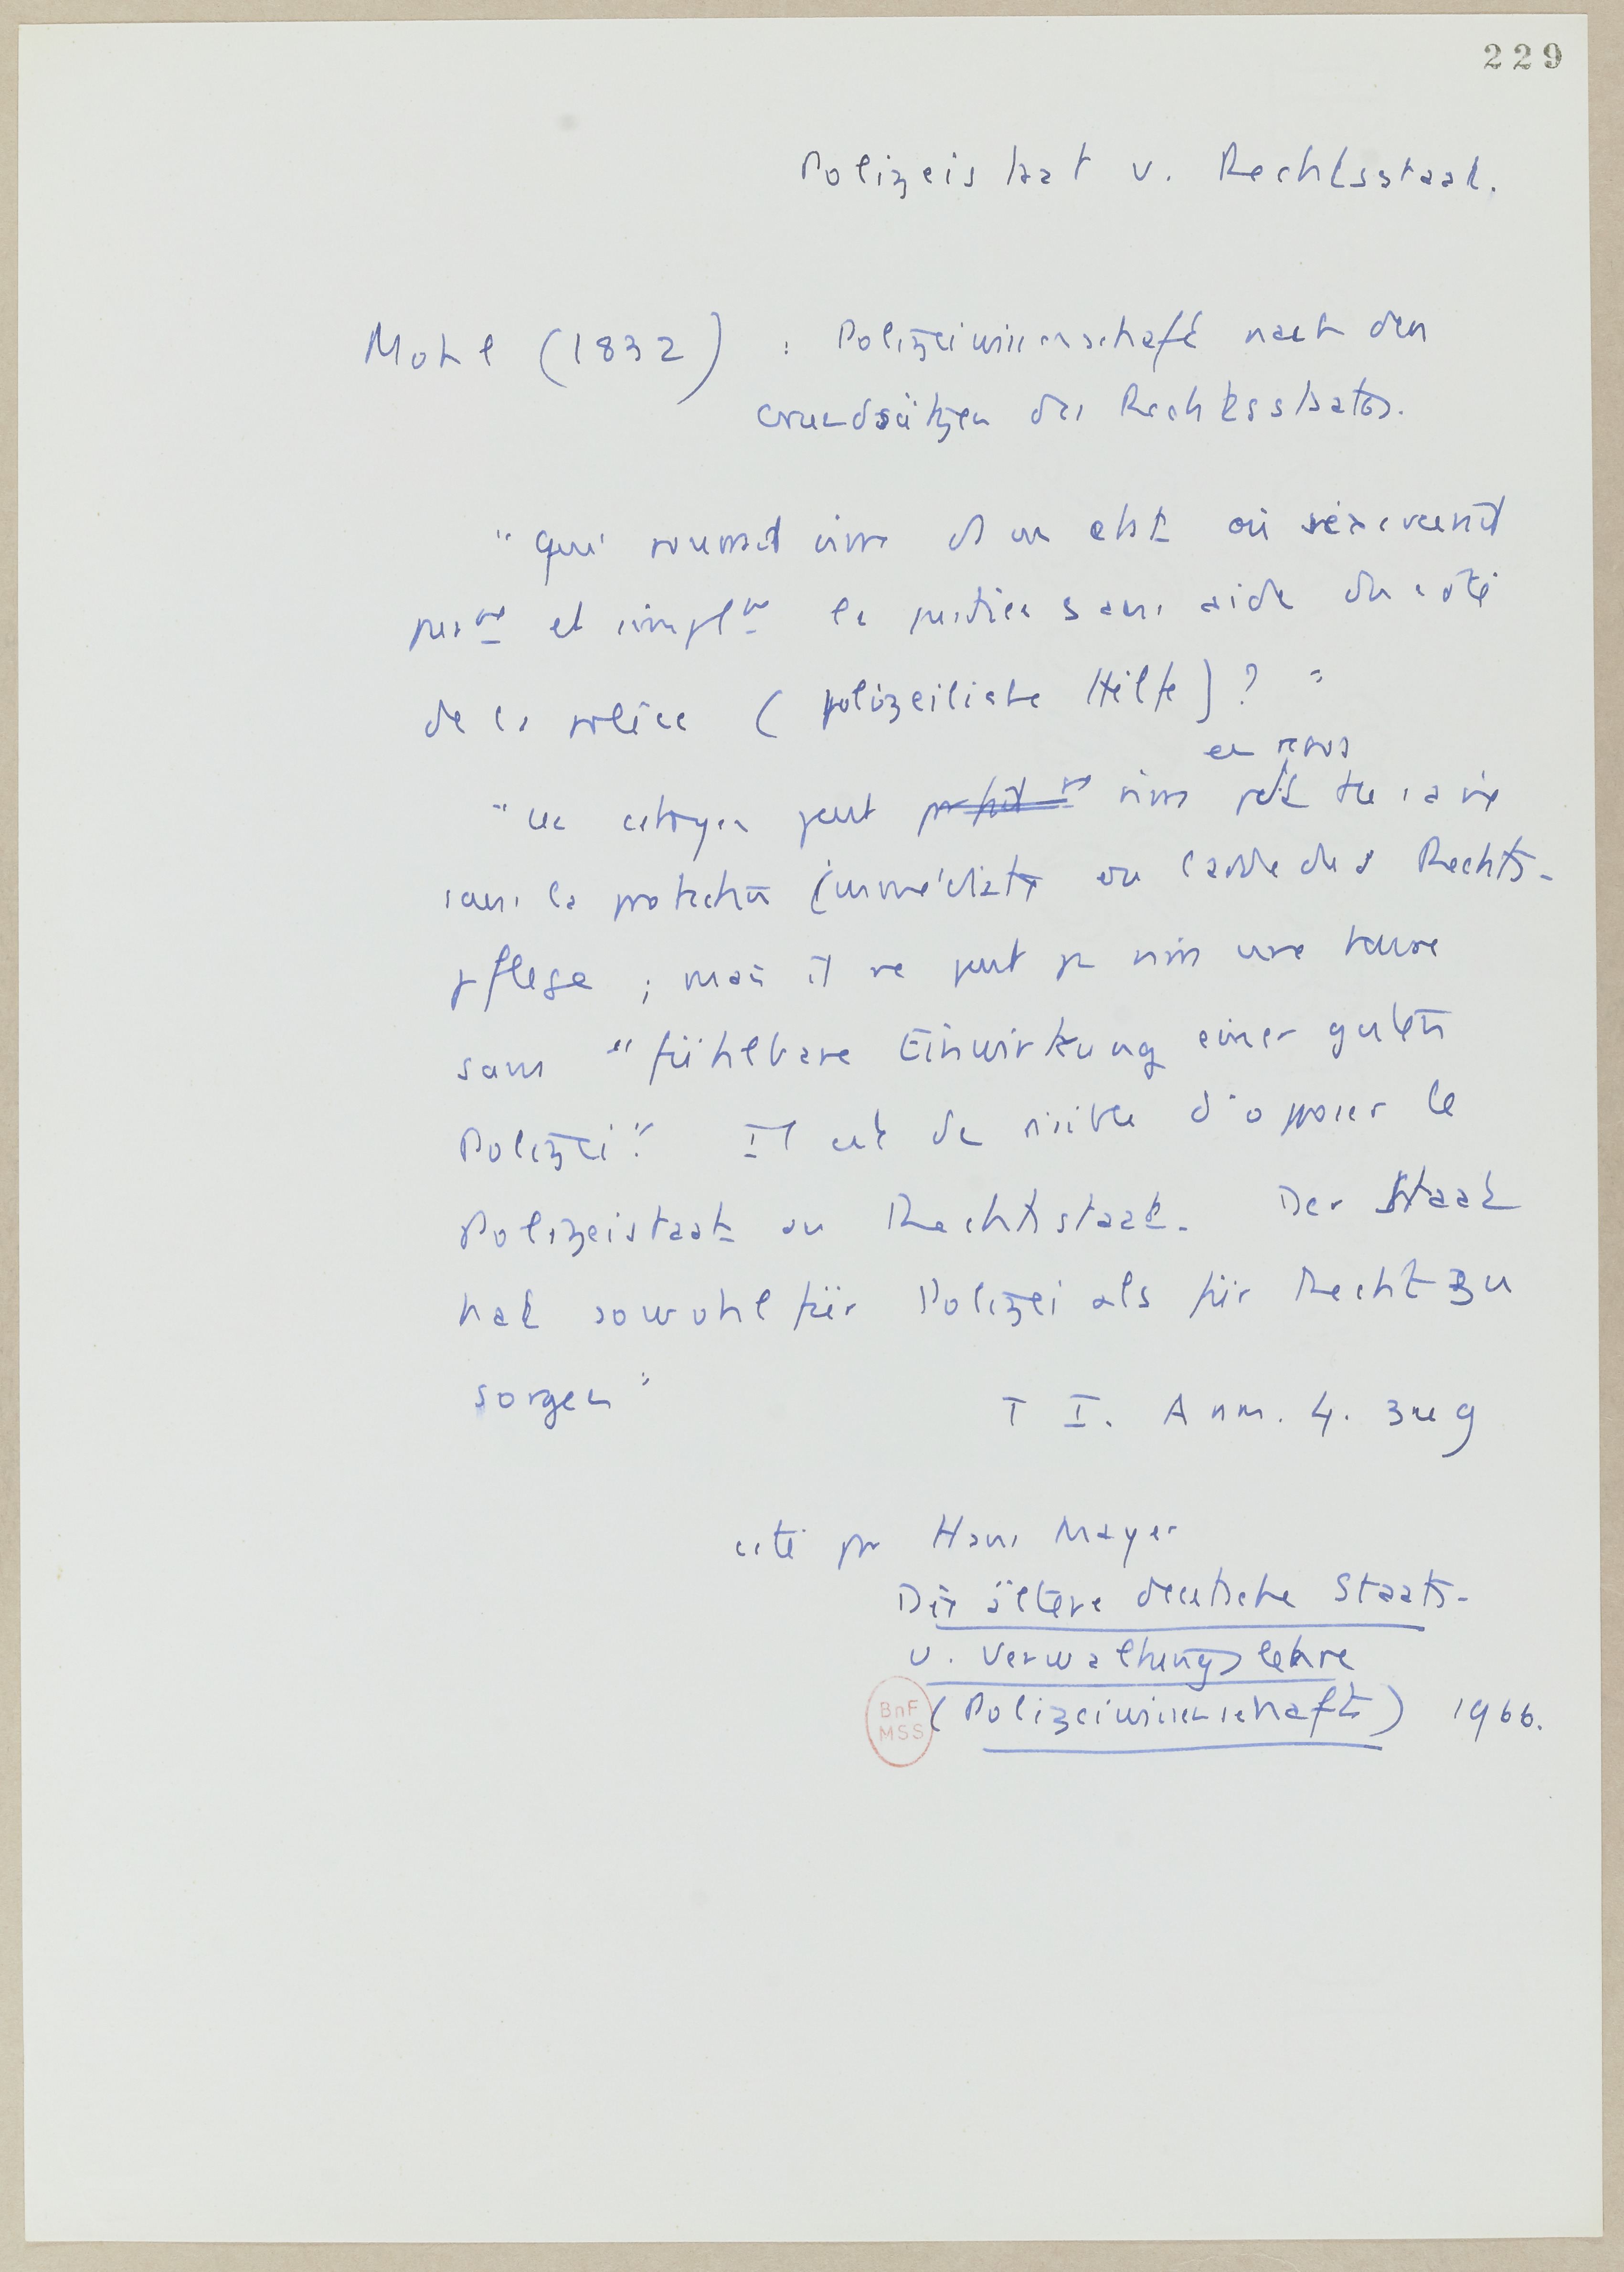 229
Polizeistaat v. Rechtsstaat.
Mohl (1832) : Polizeiwissenschaft nach den
Grundsätzen des Rechtsstaates.
"Qui pourrait vivre ds un etat où s'exercerait
purᵐᵗ et simplᵐᵗ la justice sans aide du côté
de la police (polizeiliche Hilfe) ? "
en
"un citoyen peut vivre pdt tte sa vie
sans la protection (immédiate ou de la Rechts-
pflege ; mais il ne peut pas vivre une heure
sans "fühlbare Einwirkung einer guten
Polizei". Il est d'opposer le
Polizeistaat au Rechtstaat. Der Staat
hat sowohl für Polizei als für Recht zu
sorgen"
T I. Anm. 4. zu 9
cité par Hans Mayer
Die ältere deutsche Staats-
u. Verwaltungslehre
(Polizeiwissenschaft) 1966.
BnF
MSS